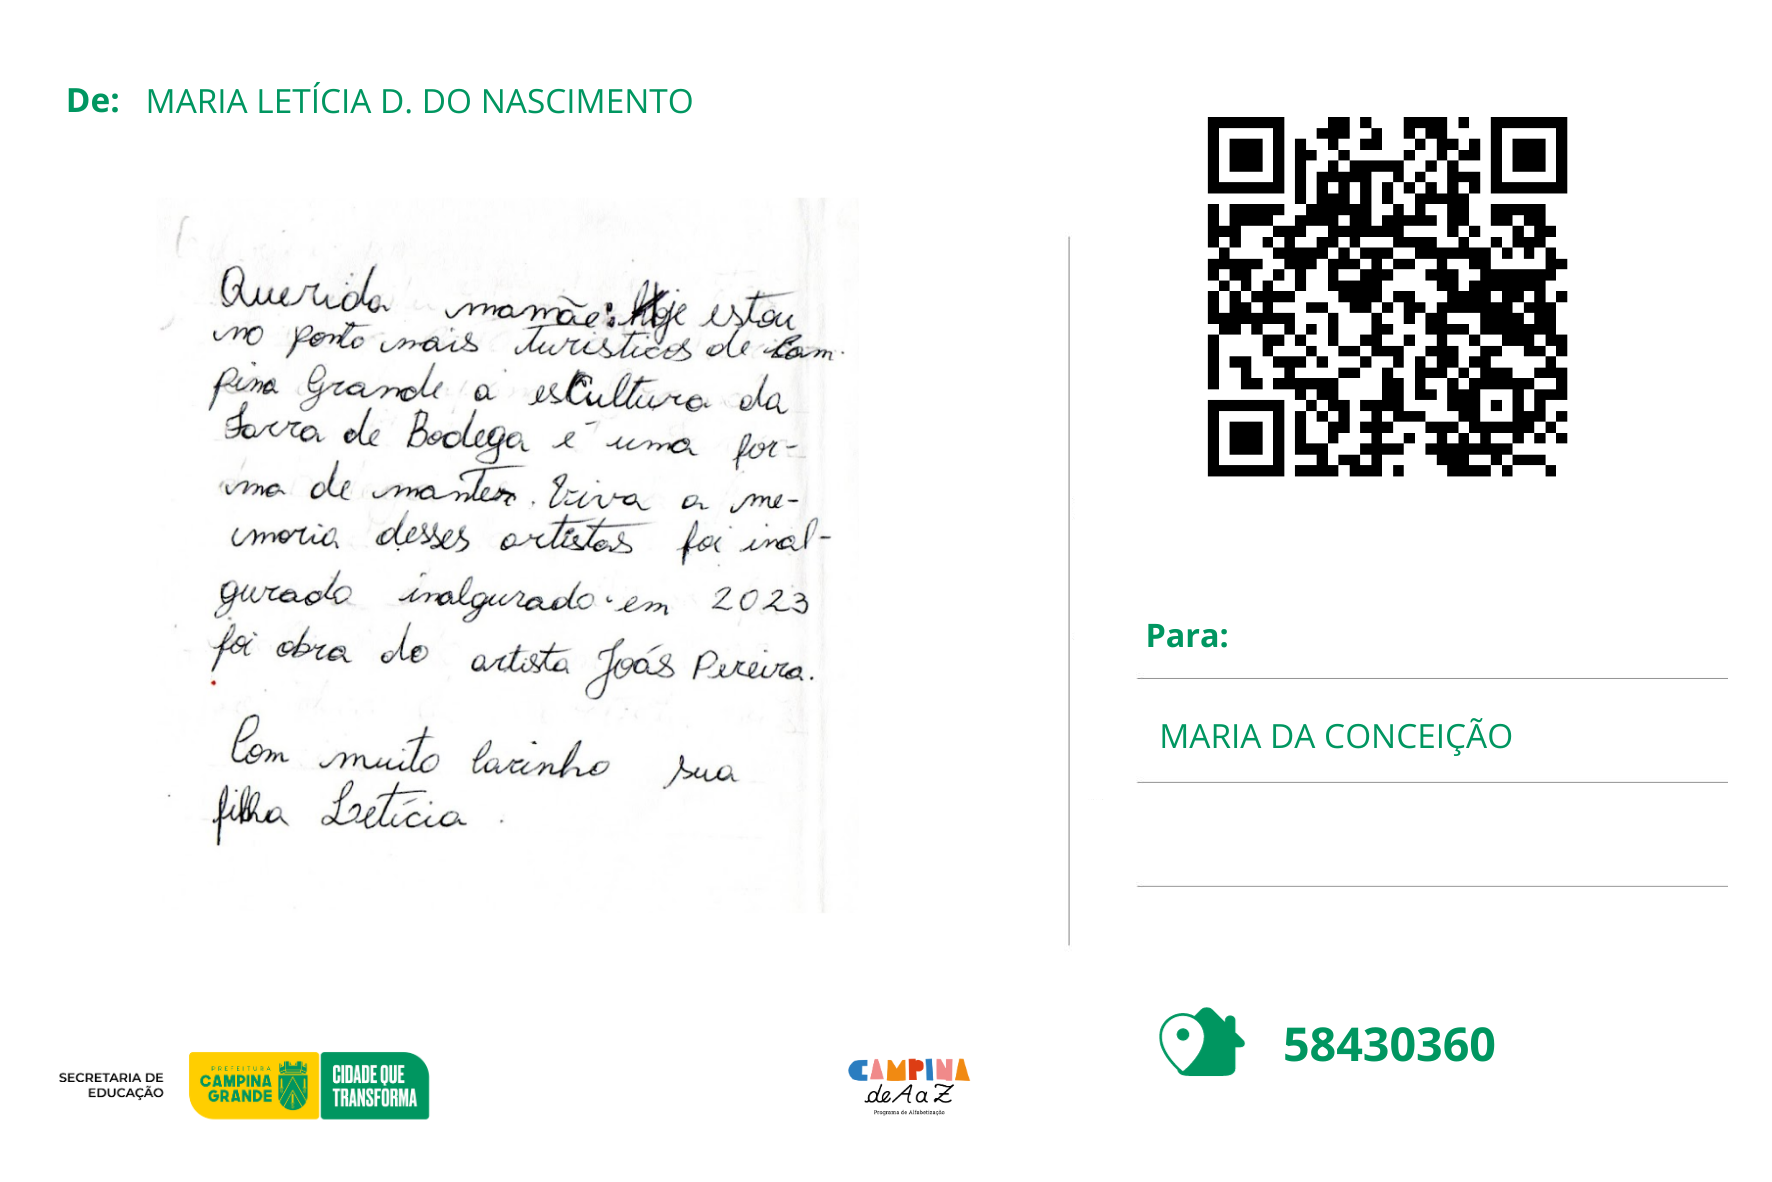 De: MARIA LETÍCIA D. DO NASCIMENTO
Querida mamãe: Hoje estou
no ponto mais turisticos de Cam-
pina Grande a esCultura da
Farra de Bodega é uma for-
ma de manter. Viva a me-
moria desses artistas foi inal-
gurado inalgurado em 2023
foi obra do artista Joás Pereira.
Com muito Carinho sua
filha Letícia.
Para:
MARIA DA CONCEIÇÃO
58430360
SECRETARIA DE
EDUCAÇÃO
PREFEITURA
CAMPINA
GRANDE
CIDADE QUE
TRANSFORMA
CAMPINA
de A a Z
Programa de Alfabetização